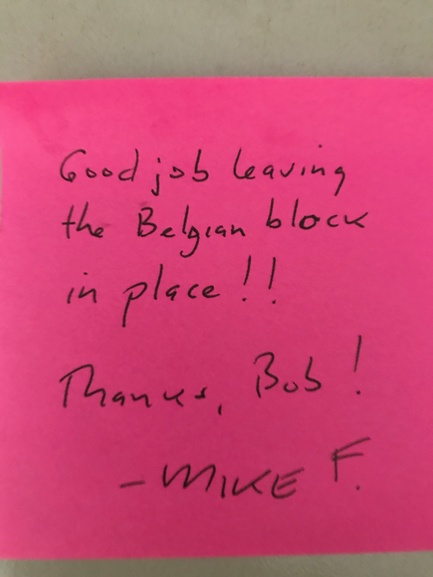 Good job leaving
the Belgian block
in place!!
Thanks, Bob!
- MIKE F.